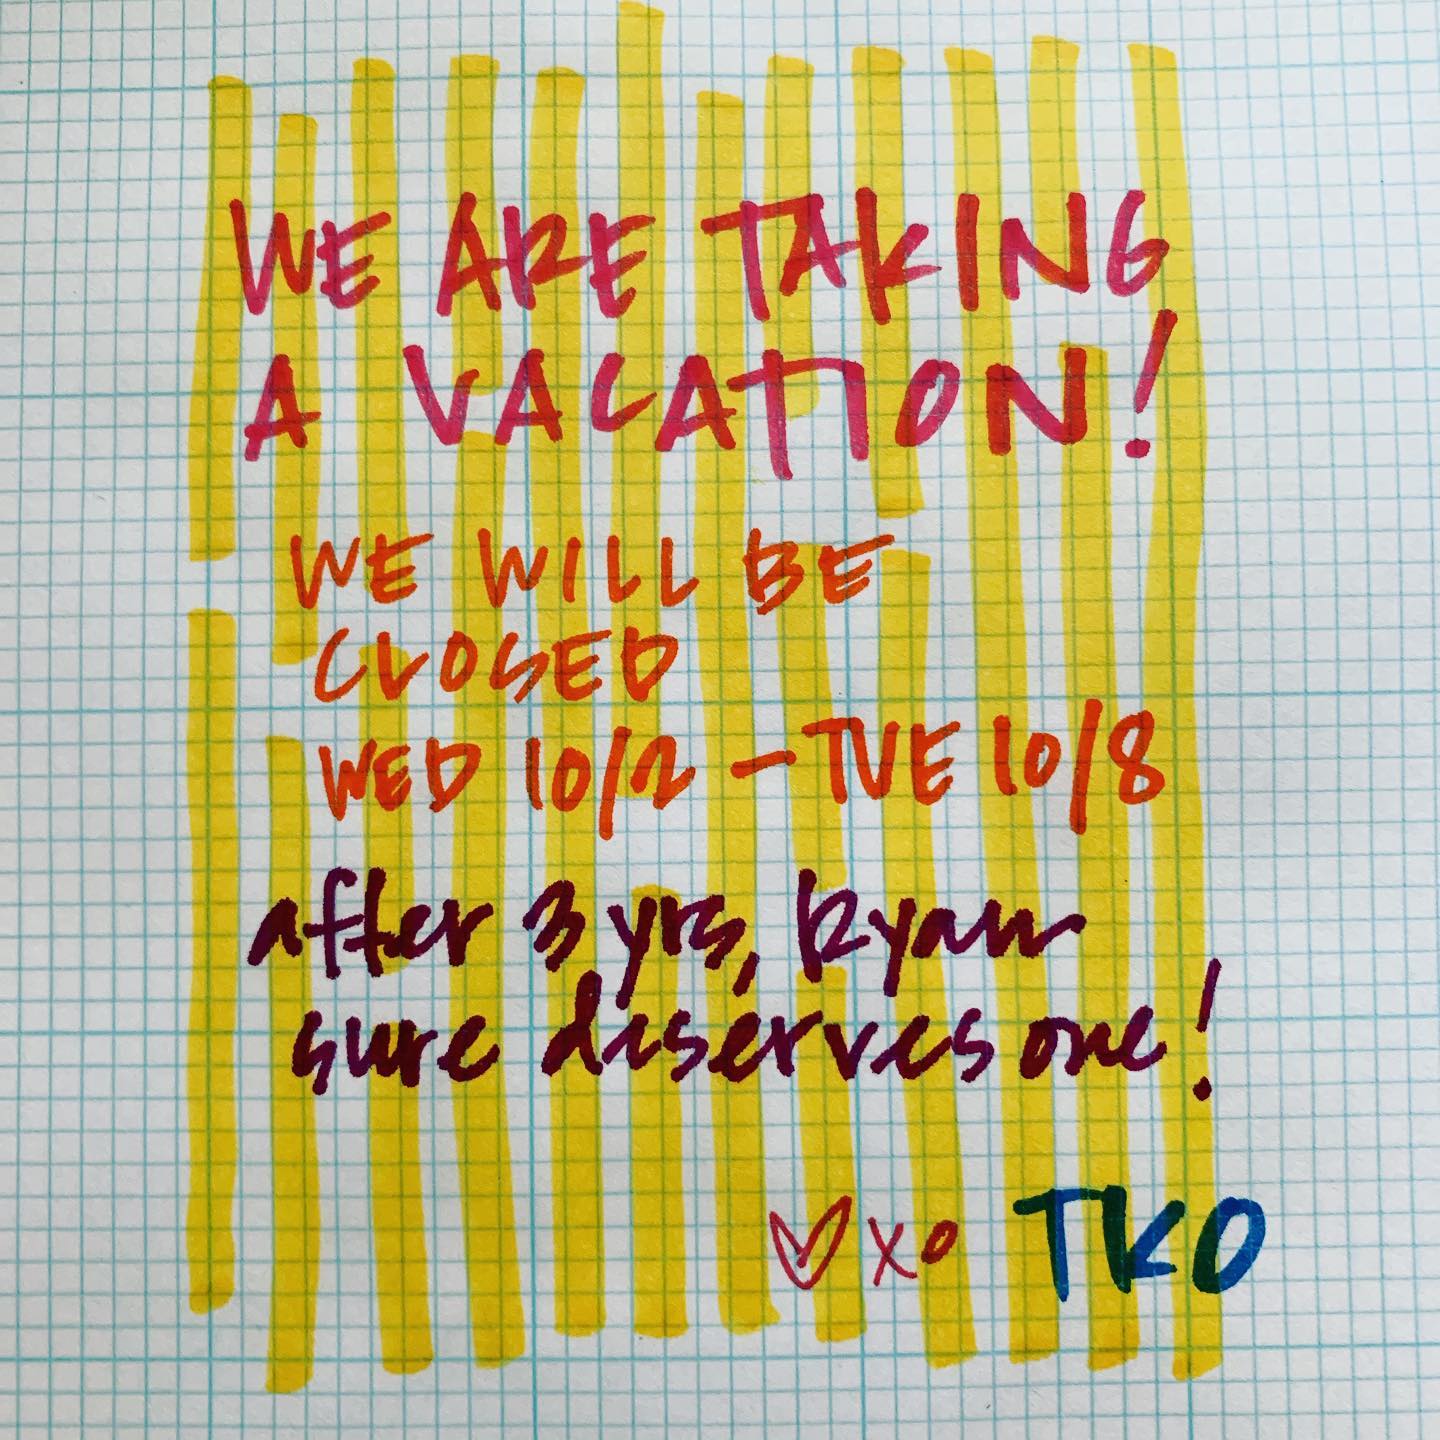 WE ARE TAKING
A VACATION!
WE WILL BE
CLOSED
WED 10/2 - TUE 10/8
after 3 yrs, Ryan
sure deserves one!
♡xo TKO